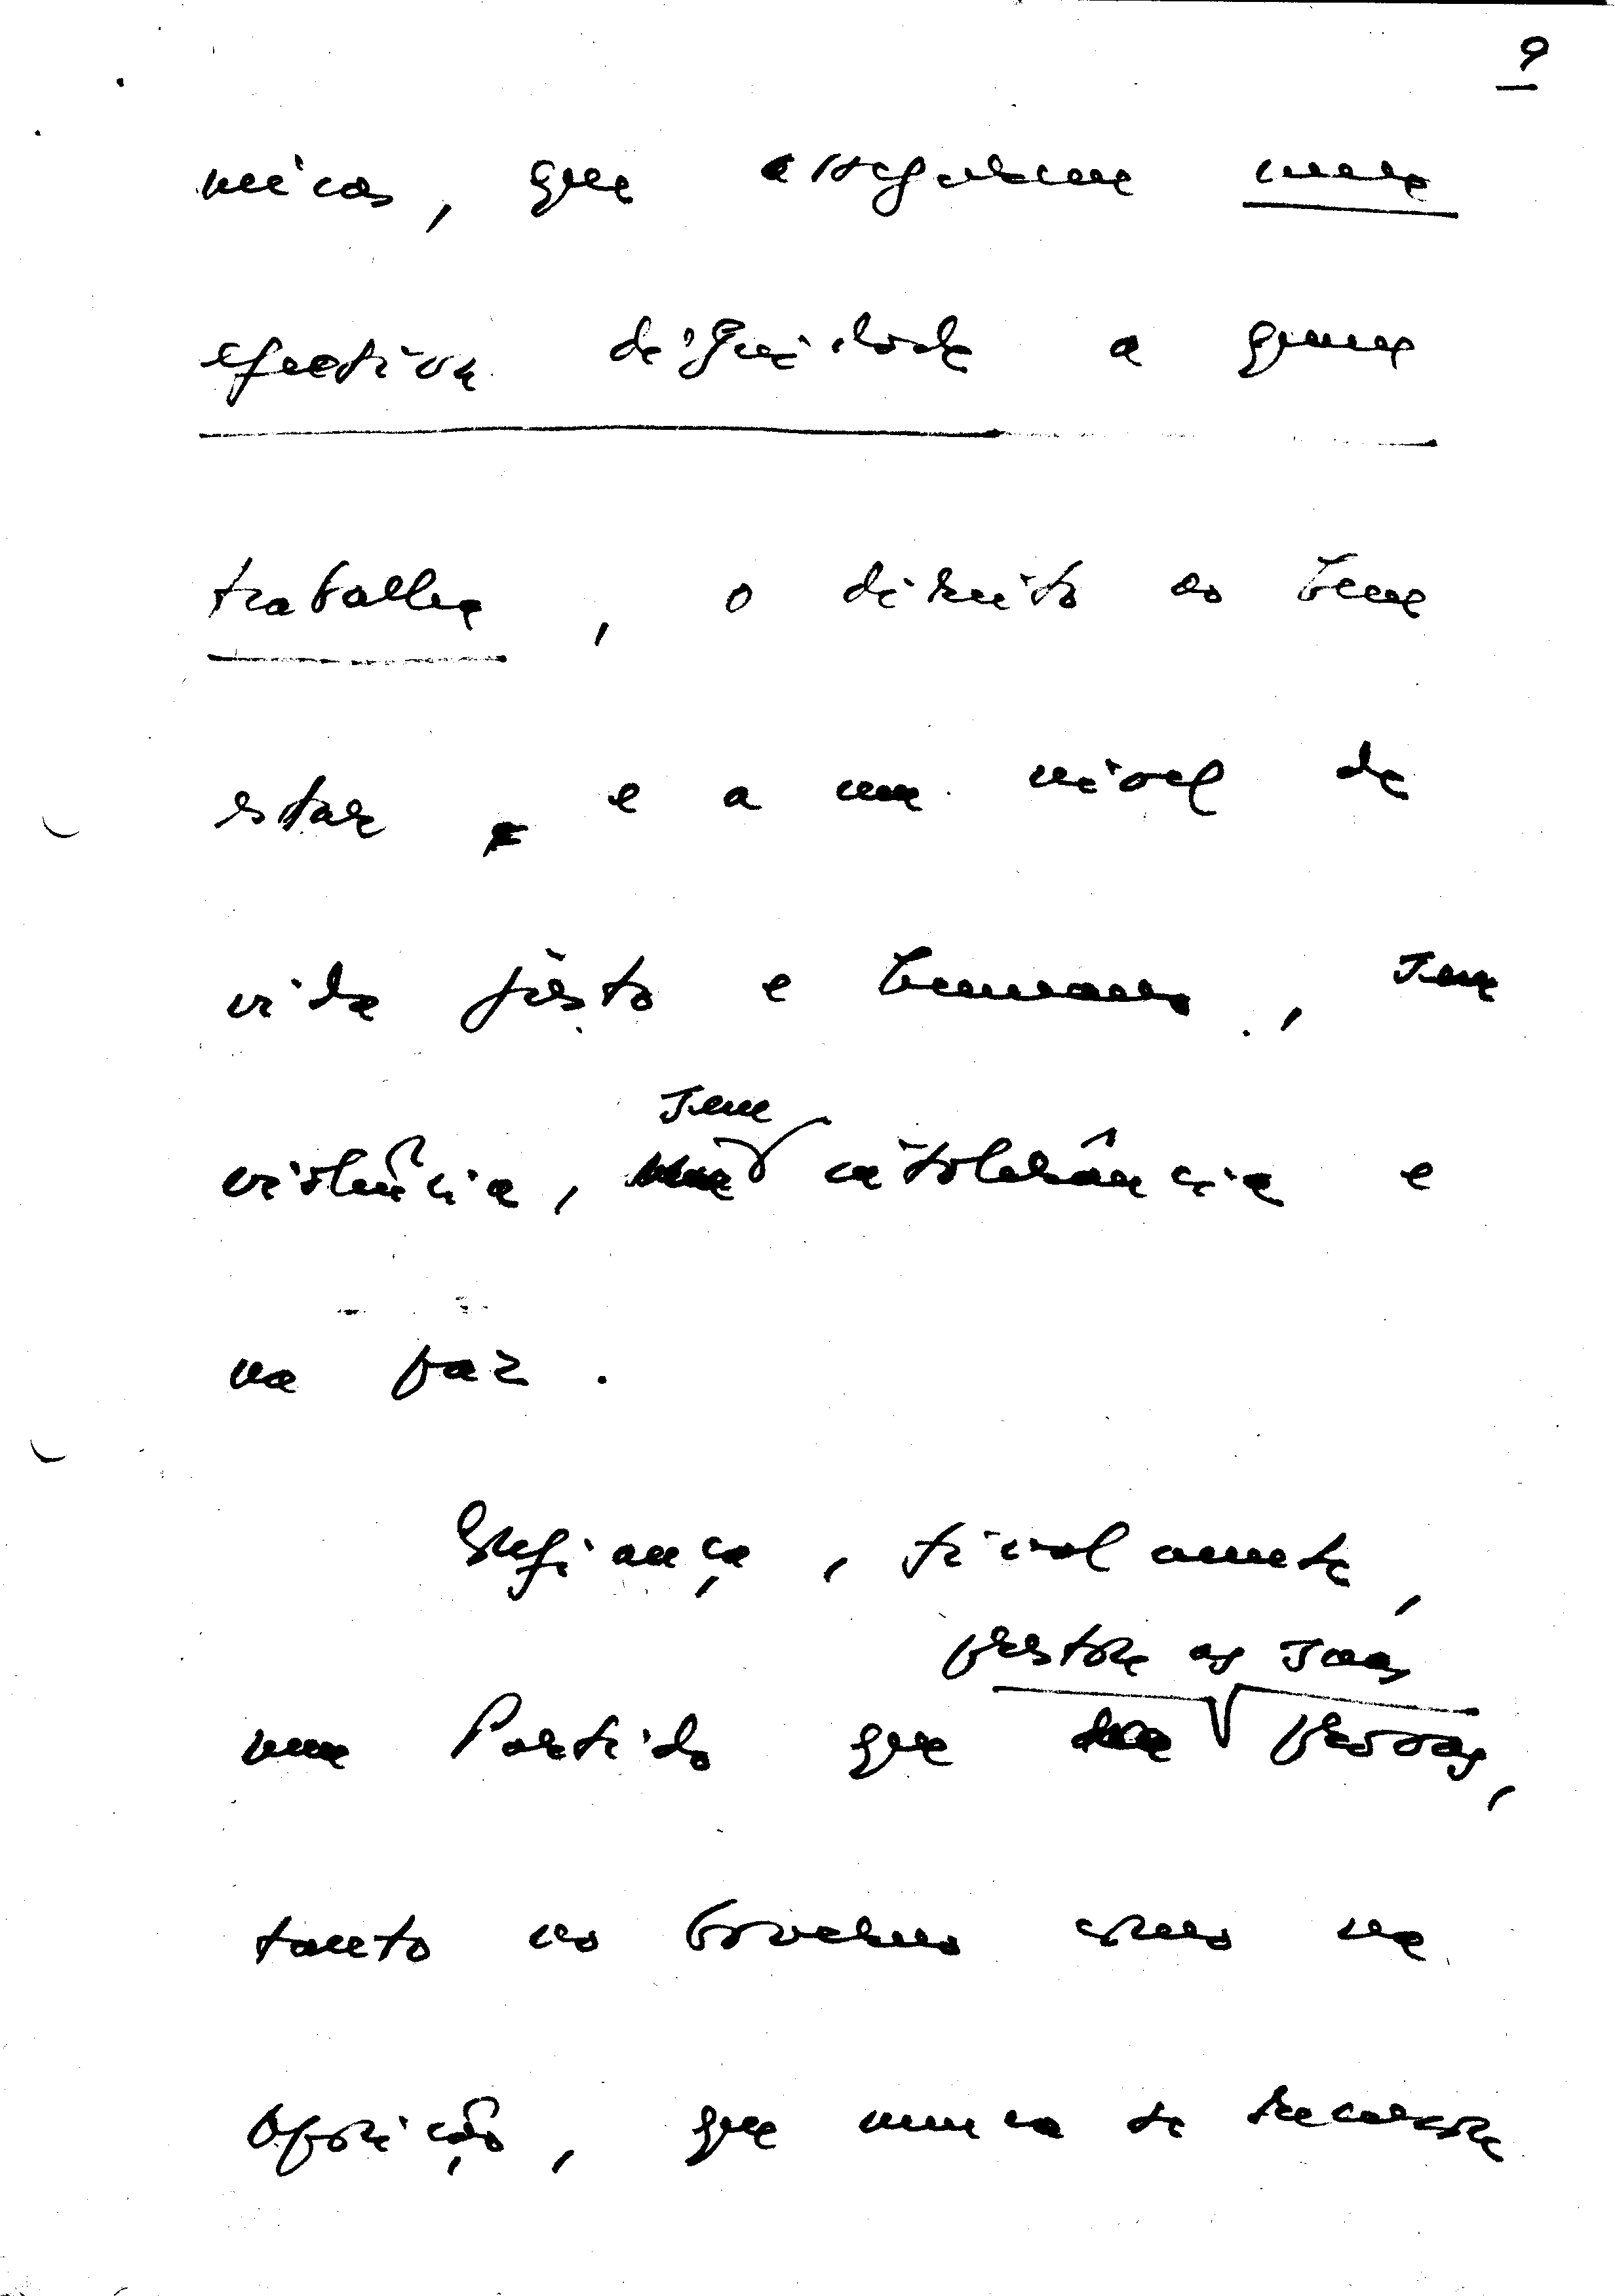 9
micas, que assegurem uma
efectiva dignidade a quem
trabalha, o direito ao bem
estar e a um nível de
vida justo e humano, sem
sem
violência, intolerância e
na paz.
Confiança, finalmente,
prestou as suas
num Partido que provas,
tanto no Governo como na
Oposição, que nunca se recusou